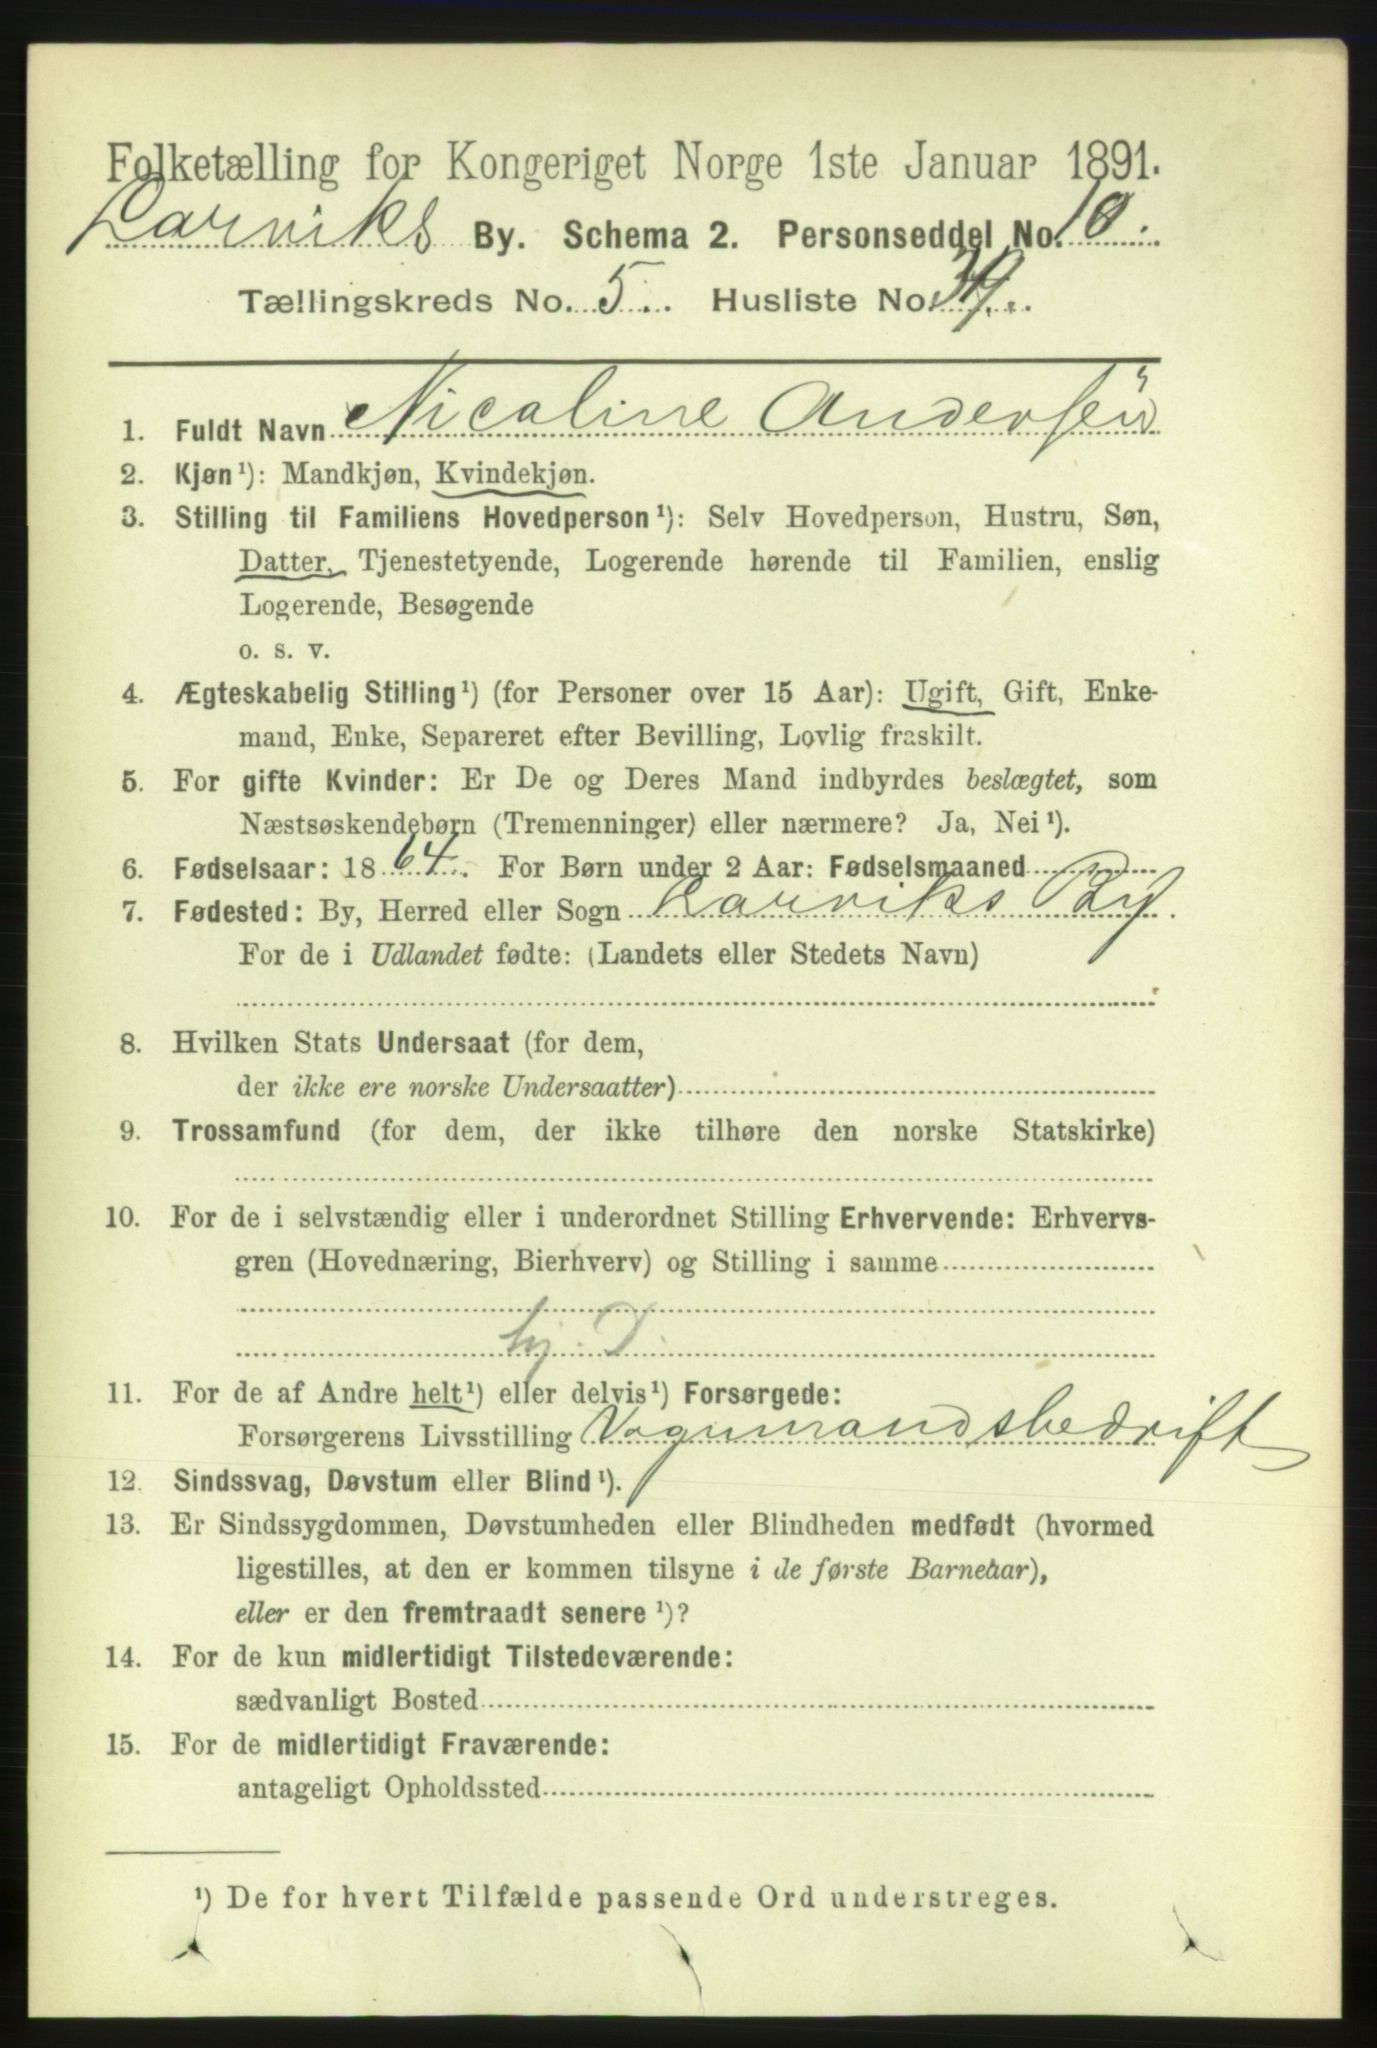 Folketælling for Kongeriget Norge 1ste Januar 1891.
Larviks By. Schema 2. Personseddel No. 10.
Tællingskreds No. 5. Husliste No.
1. Fuldt Navn Nicoline Andersen
2. Kjøn¹): Mandkjøn, Kvindekjøn.
3. Stilling til Familiens Hovedperson¹): Selv Hovedperson, Hustru, Søn,
Datter, Tjenestetyende, Logerende hørende til Familien, enslig
Logerende, Besøgende
o. s. v.
4. Ægteskabelig Stilling¹) (for Personer over 15 Aar): Ugift, Gift, Enke-
mand, Enke, Separeret efter Bevilling, Lovlig fraskilt.
5. For gifte Kvinder: Er De og Deres Mand indbyrdes beslægtet, som
Næstsøskendebørn (Tremenninger) eller nærmere? Ja, Nei¹).
6. Fødselsaar: 1864. For Børn under 2 Aar: Fødselsmaaned
7. Fødested: By, Herred eller Sogn Larviks By.
For de i Udlandet fødte: (Landets eller Stedets Navn)
8. Hvilken Stats Undersaat (for dem,
der ikke ere norske Undersaatter)
9. Trossamfund (for dem, der ikke tilhøre den norske Statskirke)
10. For de i selvstændig eller i underordnet Stilling Erhvervende: Erhvervs-
gren (Hovednæring, Bierhverv) og Stilling i samme
hj. D.
11. For de af Andre helt¹) eller delvis¹) Forsørgede:
Forsørgerens Livsstilling Vognmandsbedrift
12. Sindssvag, Døvstum eller Blind¹).
13. Er Sindssygdommen, Døvstumheden eller Blindheden medfødt (hvormed
ligestilles, at den er kommen tilsyne i de første Barneaar),
eller er den fremtraadt senere¹)?
14. For de kun midlertidigt Tilstedeværende:
sædvanligt Bosted
15. For de midlertidigt Fraværende:
antageligt Opholdssted
¹) De for hvert Tilfælde passende Ord understreges.